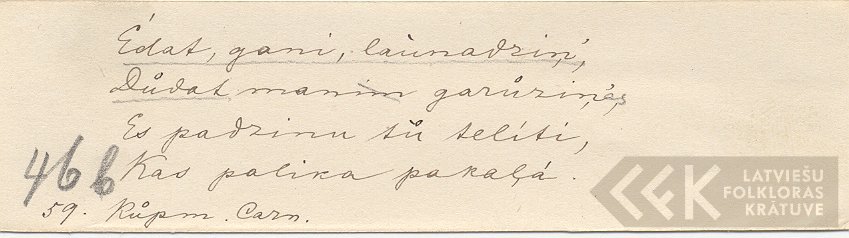 Édat, gani, laùnadziņ',
Důdat manim garůziņ's,
Es padzinu tů telíti,
Kas palika pakaļá.
46b
59. Kůpm. Carn.
LATVIEŠU
FOLKLORAS
KRĀTUVE